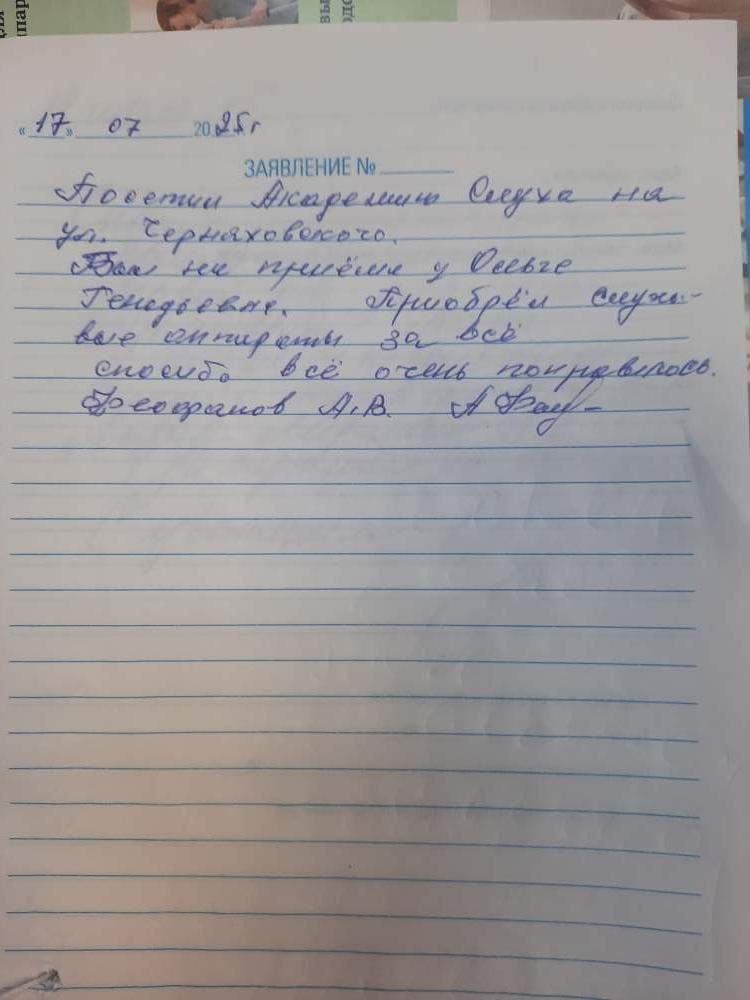 «17» 07 2025г
ЗАЯВЛЕНИЕ №
Посетил Академию Слуха на
ул. Черняховского.
Был на приёме у Ольге
Генадьевне. Приобрёл слухо-
вые аппараты за всё
спосибо всё очень понравилось.
Феофанов А.В.